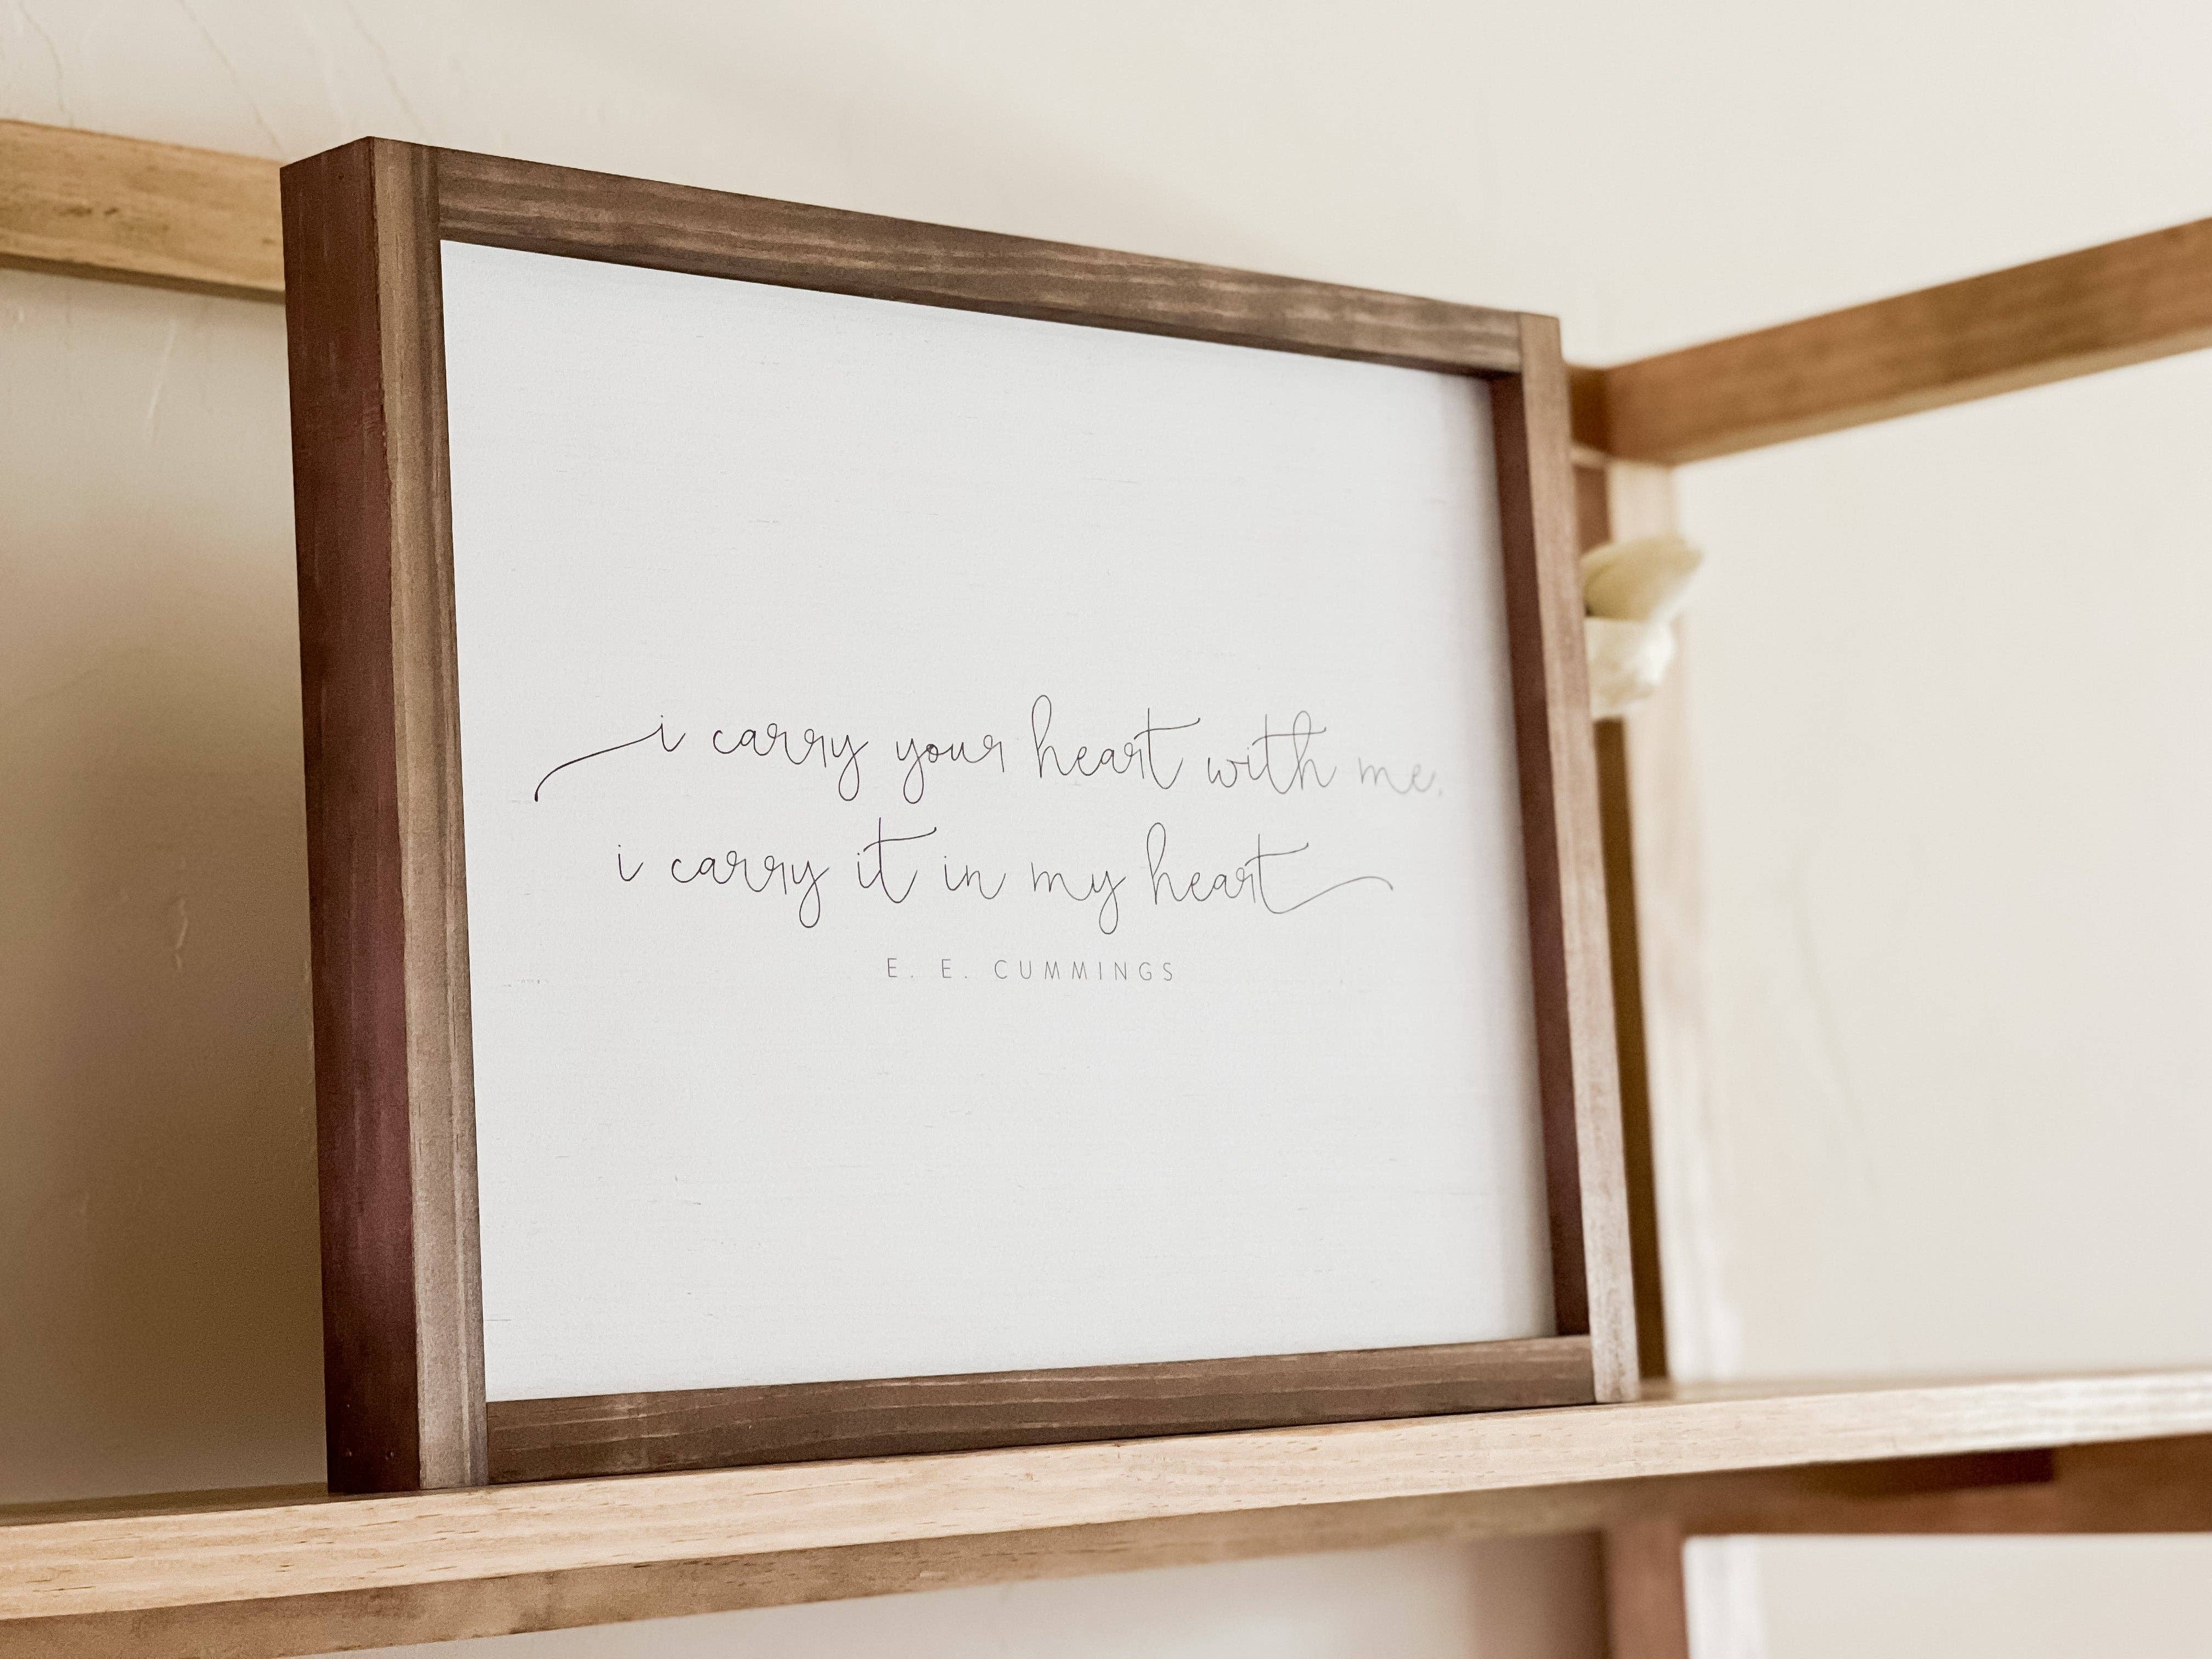 i carry your heart with me.
i carry it in my heart
E. E. CUMMINGS